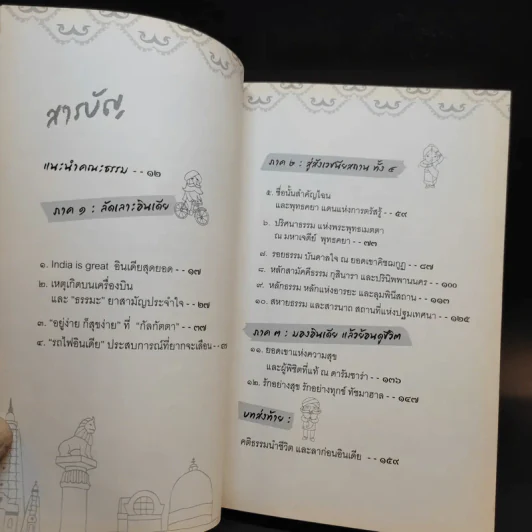 สารบัญ
แนะนำคณะธรรม -- ๑๒
ภาค ๑ : ลัดเลาะอินเดีย
๑. India is great อินเดียสุดยอด -- ๑๗
๒. เหตุเกิดบนเครื่องบิน
และ “ธรรมะ” ยาสามัญประจำใจ -- ๒๗
๓. “อยู่ง่าย ก็สุขง่าย” ที่ “กัลกัตตา” -- ๓๗
๔. “รถไฟอินเดีย” ประสบการณ์ที่ยากจะเลือน
ภาค ๒ : สู่สังเวชนียสถาน ทั้ง ๔
๕. ชื่อนั้นสำคัญไฉน
และพุทธคยา แดนแห่งการตรัสรู้ -- ๕๙
๖. ปริศนาธรรม แห่งพระพุทธเมตตา
ณ มหาเจดีย์ พุทธคยา -- ๗๓
๗. รอยธรรม บันดาลใจ ณ ยอดเขาคิชฌกูฏ -- ๘๗
๘. หลักสามัคคีธรรม กุสินารา และปรินิพพานนคร -- ๑๐๐
๙. หลักธรรม แห่งเหล่าอารยะ และลุมพินีสถาน -- ๑๑๓
๑๐. สหายธรรม และสารนาถ สถานที่แห่งปฐมเทศนา -- ๑๒๕
ภาค ๓ : มองอินเดีย แล้วย้อนดูชีวิต
๑๑. ยอดเขาแห่งความสุข
และผู้พิชิตที่แท้ ณ ดารัมซาร่า -- ๑๓๖
๑๒. รักอย่างสุข รักอย่างทุกข์ ทัชมาฮาล -- ๑๔๗
บทส่งท้าย :
คติธรรมนำชีวิต และลาก่อนอินเดีย -- ๑๕๙